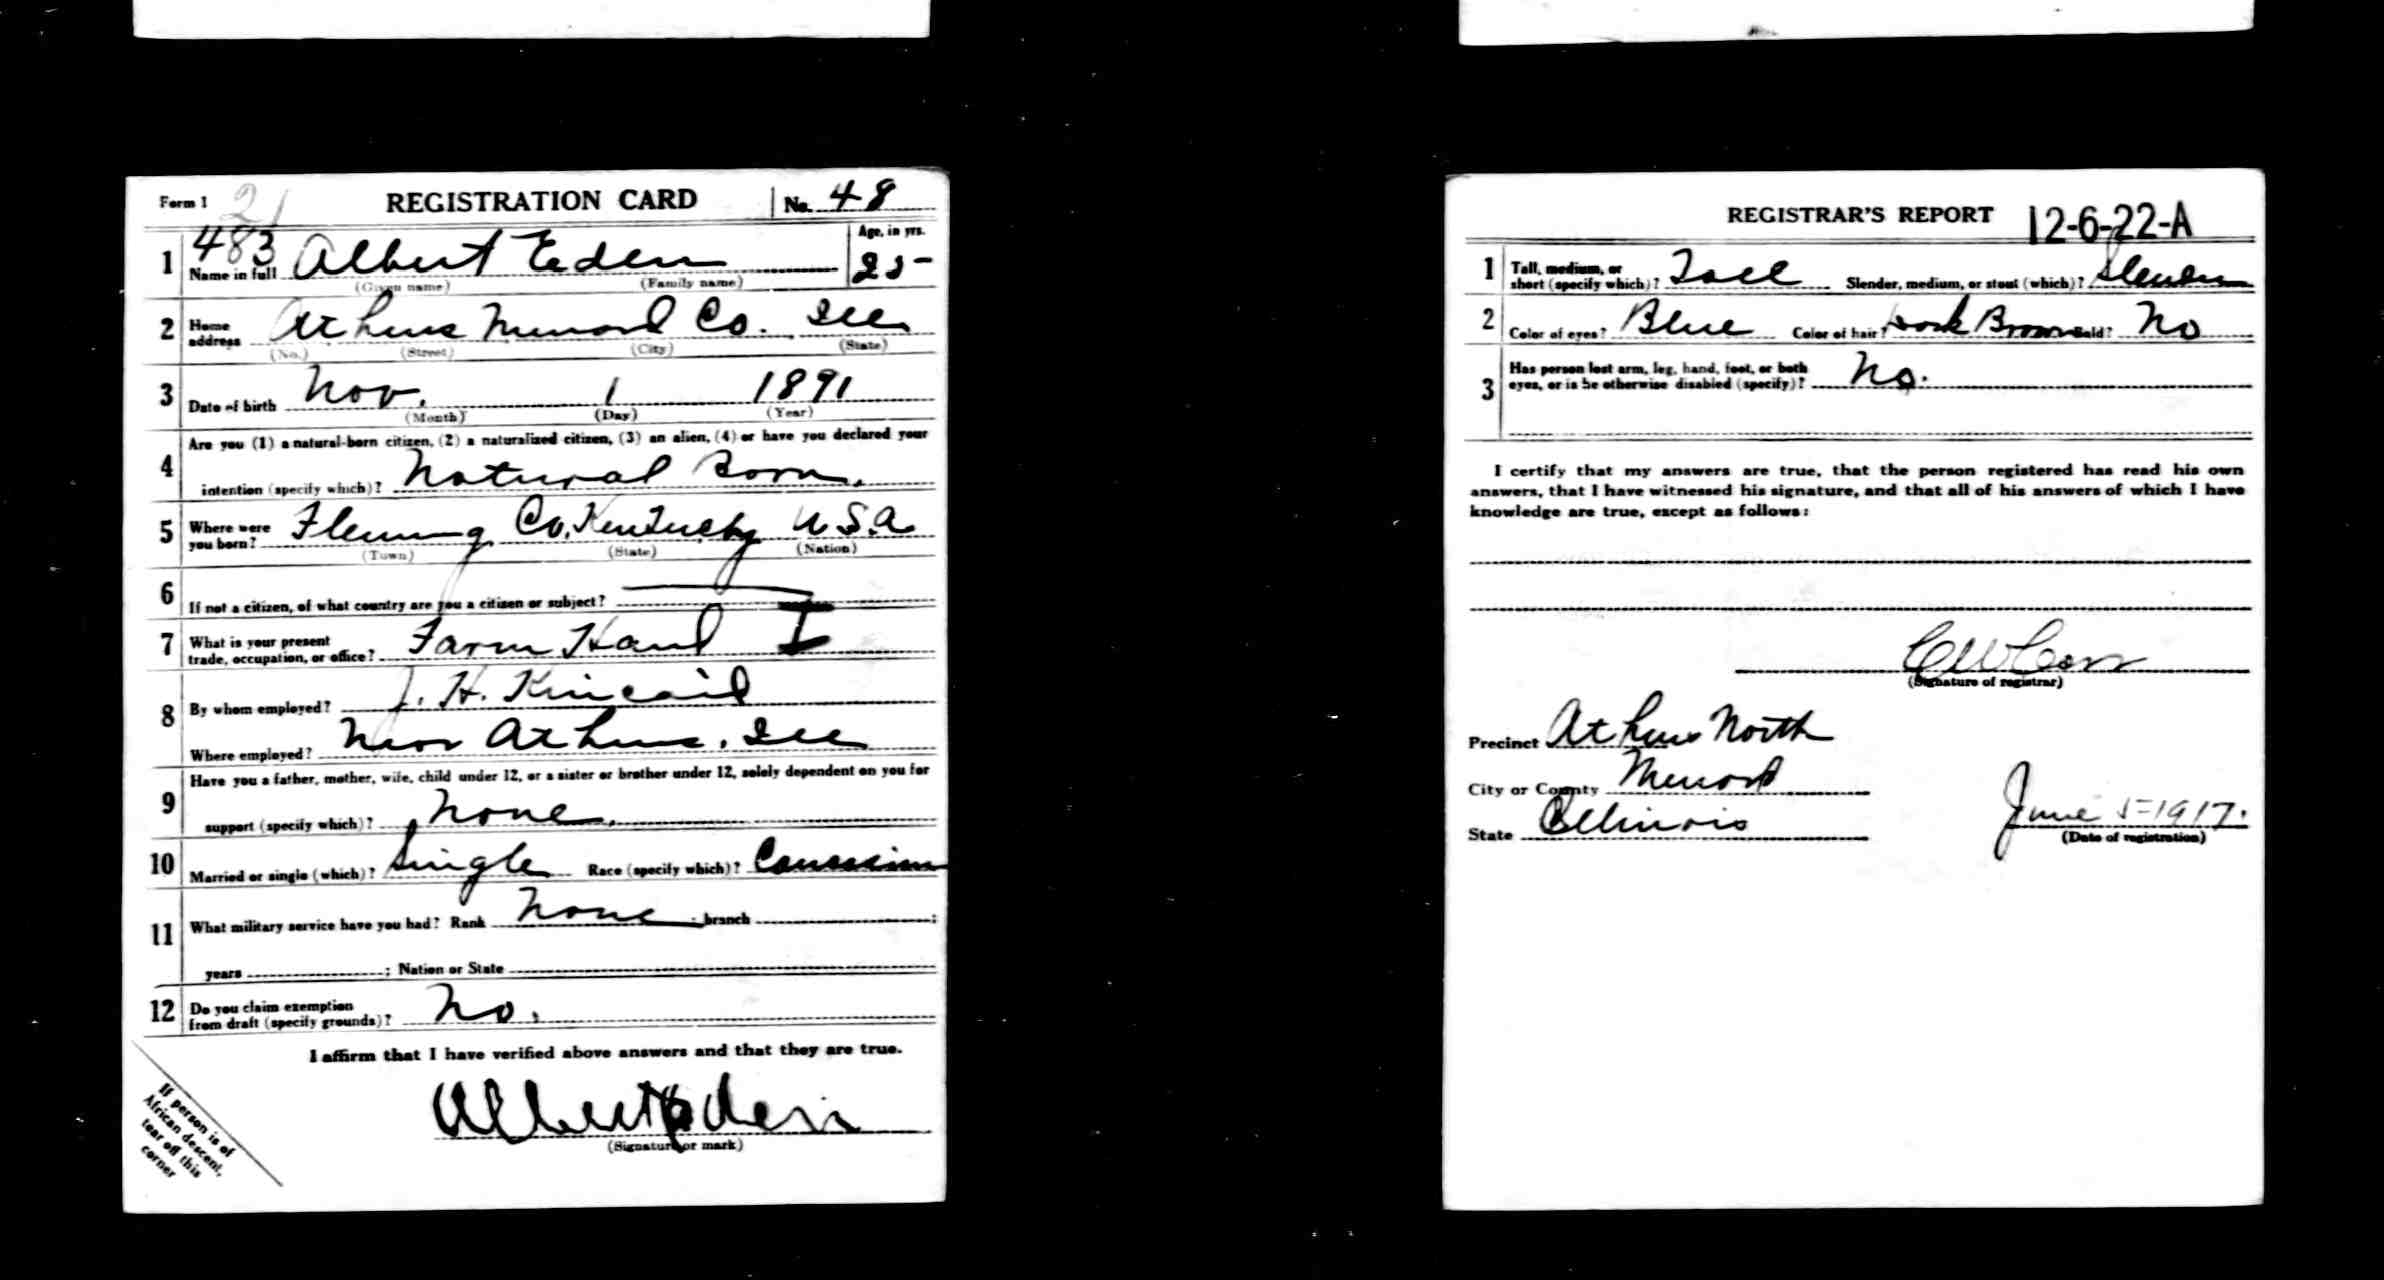 Form 1 21 REGISTRATION CARD No. 48
483 Age, in yrs.
1 Name in full Albert Eden 25
(Given name) (Family name)
2 Home address Athens Menard Co. Ill
(No.) (Street) (City) (State)
3 Date of birth Nov. 1 1891
(Month) (Day) (Year)
Are you (1) a natural-born citizen, (2) a naturalized citizen, (3) an alien, (4) or have you declared your
4 intention (specify which)? Natural Born.
5 Where were you born? Fleming Co. Kentucky U S A
(Town) (State) (Nation)
6 If not a citizen, of what country are you a citizen or subject?
7 What is your present
trade, occupation, or office? Farm Hand I
8 By whom employed? J. H. Kincaid
Where employed? Near Athens, Ill
Have you a father, mother, wife, child under 12, or a sister or brother under 12, solely dependent on you for
9 support (specify which)? None.
10 Married or single (which)? Single Race (specify which)? Caucasian
11 What military service have you had? Rank None ; branch ;
years ; Nation or State
12 Do you claim exemption
from draft (specify grounds)? No.
I affirm that I have verified above answers and that they are true.
Albert Eden
(Signature or mark)
If person is of
African descent,
tear off this
corner
REGISTRAR'S REPORT 12-6-22-A
1 Tall, medium, or
short (specify which)? Tall Slender, medium, or stout (which)? Slender
2 Color of eyes? Blue Color of hair? Dark Brown Bald? No
3 Has person lost arm, leg, hand, foot, or both
eyes, or is he otherwise disabled (specify)? No.
I certify that my answers are true, that the person registered has read his own
answers, that I have witnessed his signature, and that all of his answers of which I have
knowledge are true, except as follows:
(Signature of registrar)
Precinct Athens North
City or County Menard
State Illinois June 5-1917.
(Date of registration)